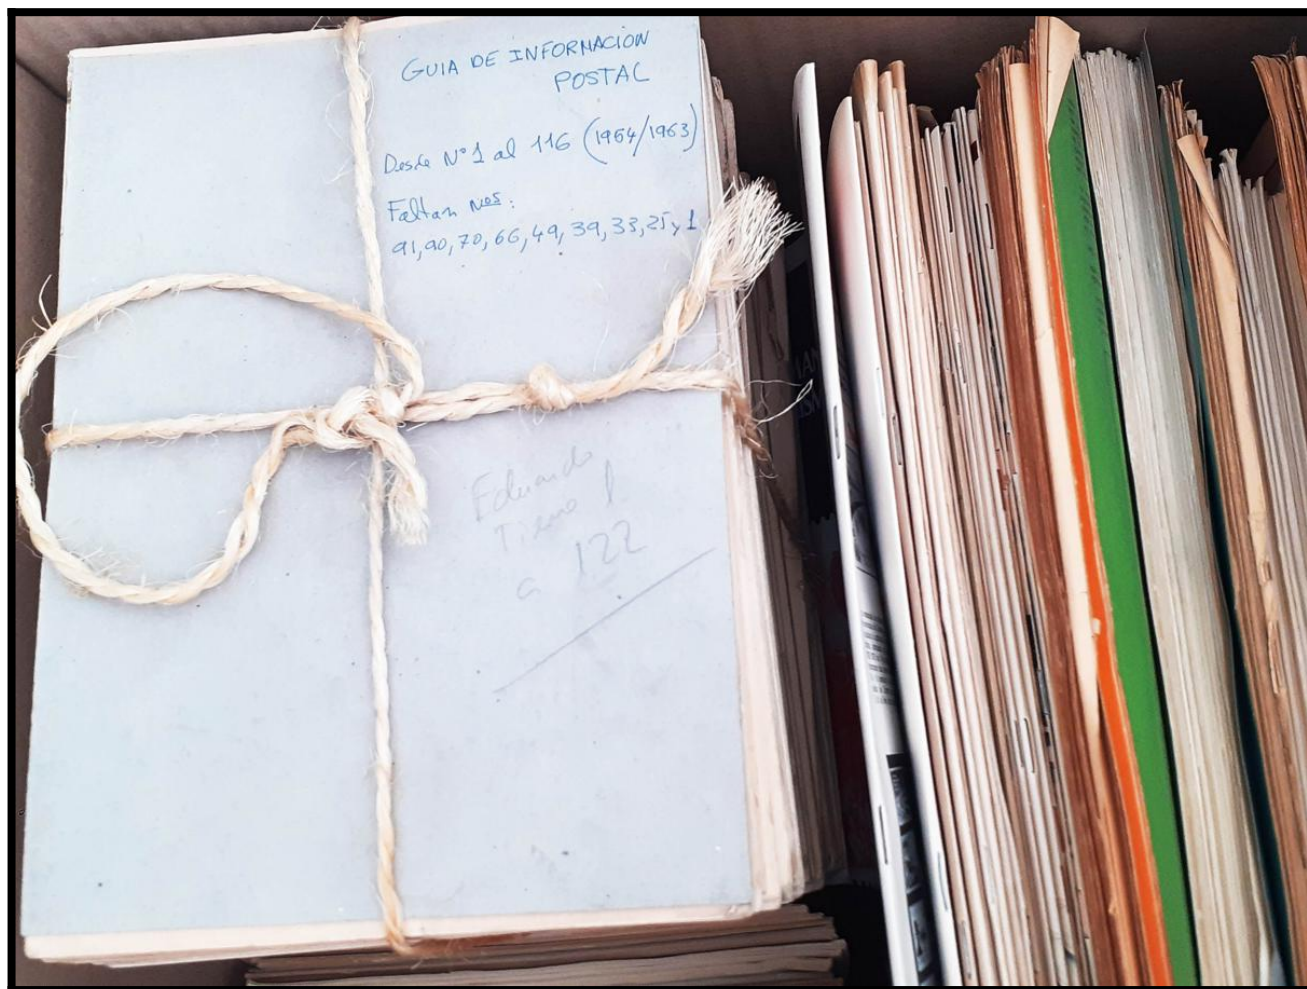 GUIA DE INFORMACION
POSTAL
Desde Nº 1 al 116 (1954/1963)
Faltan Nos:
91, 90, 70, 66, 49, 39, 33, 25 y 1
Eduardo
Tiene 1
a 122